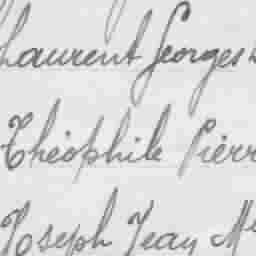 Laurent Georges
Théophile Pierr
Joseph Jean M